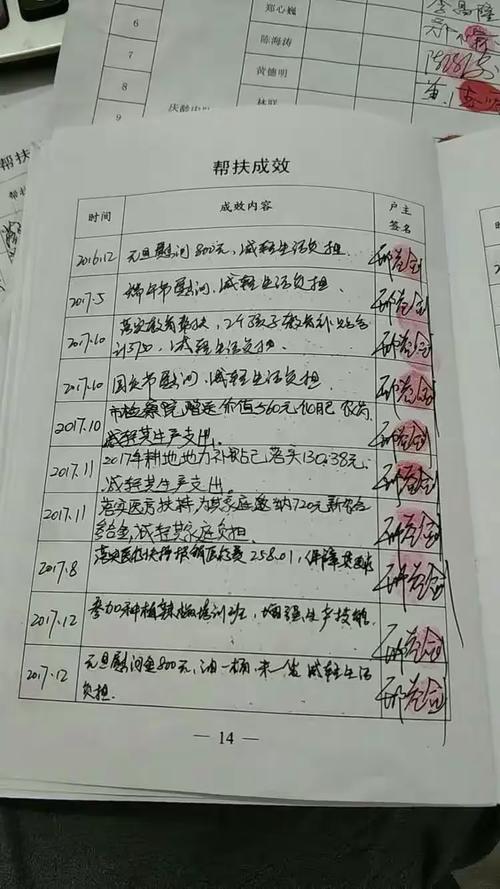 6
郑心巍
7
陈海涛
8
黄德明
9
林联
帮扶成效
时间 成效内容 户主签名
2016.12 元旦慰问800元,减轻生活负担.
2017.5 端午节慰问,减轻生活负担.
2017.10 落实教育帮扶,2个孩子教育补贴合
计3750,减轻生活负担.
2017.10 国庆节慰问,减轻生活负担.
2017.10 市检察院赠送价值560元化肥 农药
减轻其生产支出.
2017.11 2017年耕地地力补贴已落实130.38元,
减轻其生产支出.
2017.11 落实医疗扶持,为其家庭缴纳720元新农合
参合金,减轻其家庭负担.
2017.8 落实医疗扶持报销医疗费258.01,保障其
2017.12 参加种植辣椒培训班,增强生产技能.
2017.12 元旦慰问金800元,油一桶,米一袋 减轻生活
负担.
— 14 —